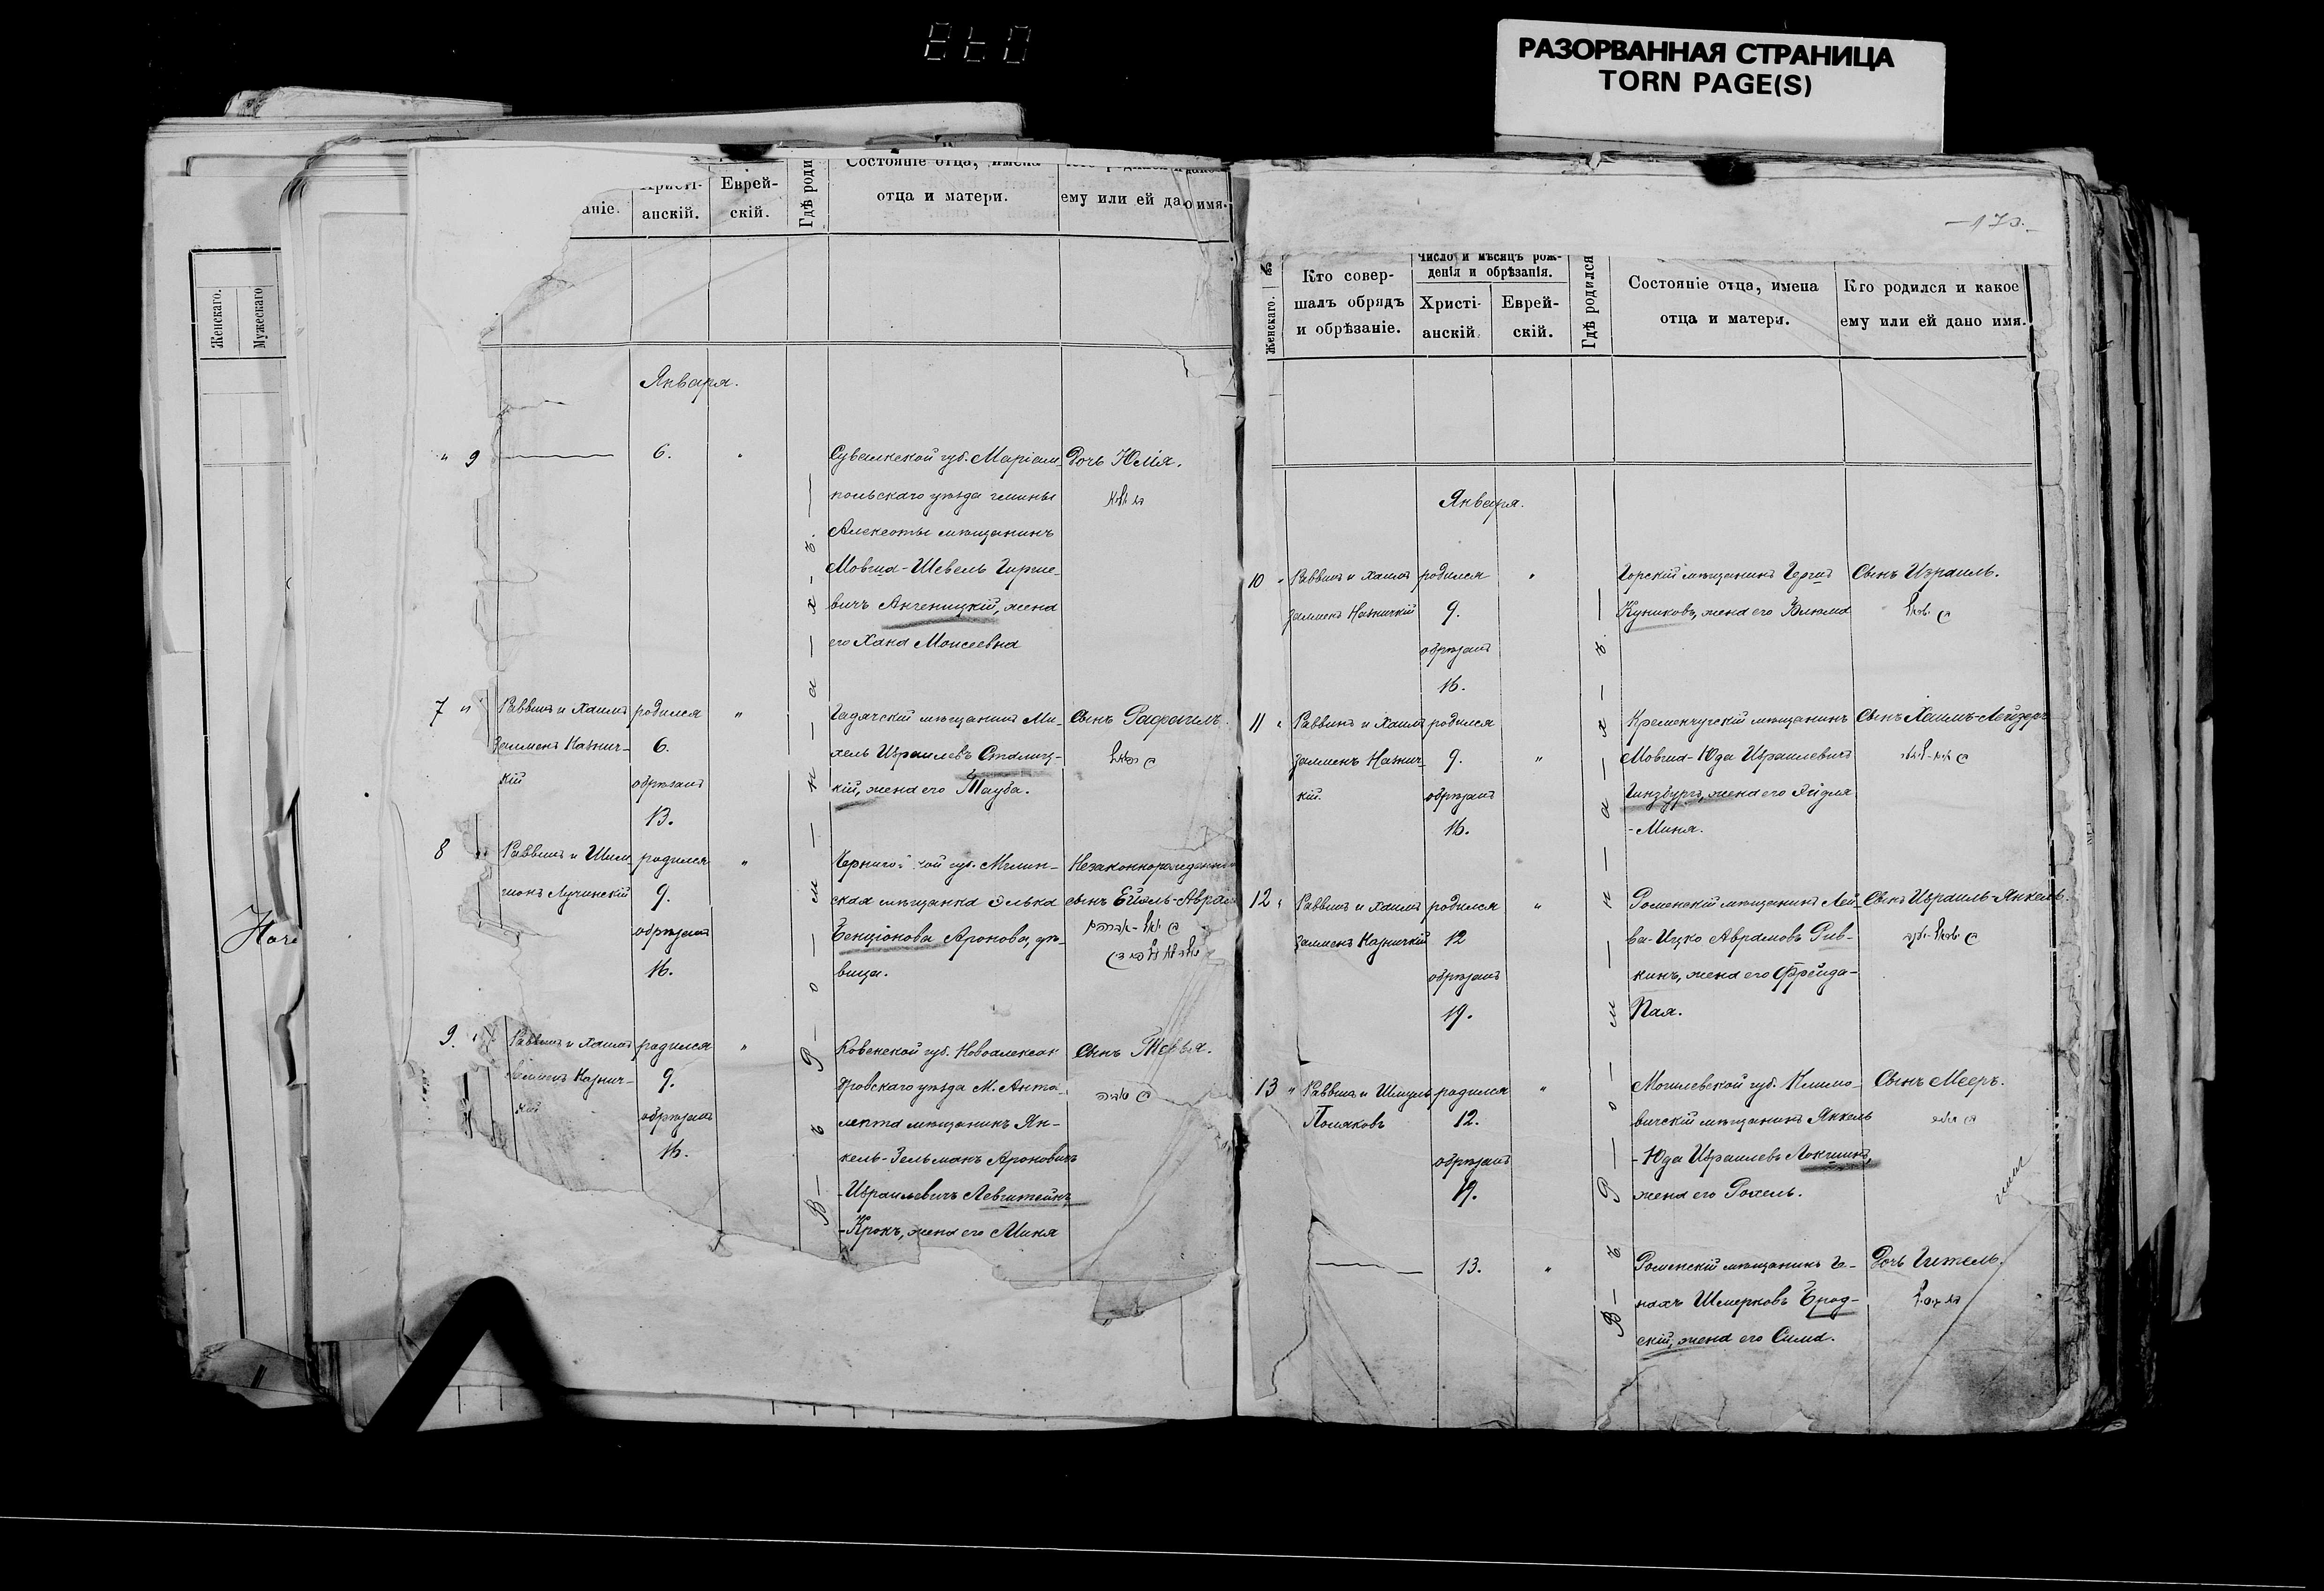 РАЗОРВАННАЯ СТРАНИЦА
TORN PAGE(S)
Женскаго.
Мужескаго
аніе.
Христі-
анскій.
Еврей-
скій.
Гдѣ роди
Состояніе отца, имена
отца и матери.
ему или ей дано имя.
Января.
" 9
6.
"
Сувалкской губ. Маріам-
польскаго уѣзда гмины
Алексоты мѣщанинъ
Мовша-Шевель Гирше-
вичъ Анченицкій, жена
его Хана Моисеевна
Дочь Юлія.
7 "
Раввинъ и Хаимъ
Залменъ Казнич-
кій
родился
6.
обрѣзанъ
13.
"
Гадячскій мѣщанинъ Ми-
хель Израилевъ Столиц-
кій, жена его Тауба.
Сынъ Рафаилъ.
8 "
Раввинъ и Шим-
шонъ Лучинскій
родился
9.
обрѣзанъ
16.
"
ской губ. Мглин-
ская мѣщанка Элька
Бенціонова Аронова, дѣ-
вица.
Незаконнорожденный
сынъ Ейоль-Абрам
9. "
Раввинъ и Хаимъ
Залменъ Казнич-
кій
родился
9.
обрѣзанъ
16.
"
Ковенской губ. Новоалексан
дровскаго уѣзда М. Анта-
лепта мѣщанинъ Ян-
кель-Зельманъ Ароновичъ
-Израилевичъ Левштейнъ
-Крокъ, жена его Миня
Сынъ Тевья.
В—ъ Р—о—м—н—а—х—ъ.
-173-
Женскаго.
№
Кто совер-
шалъ обрядъ
и обрѣзаніе.
Число и мѣсяцъ рож-
денія и обрѣзанія.
Христі-
анскій.
Еврей-
скій.
Гдѣ родился
Состояніе отца, имена
отца и матери.
Кто родился и какое
ему или ей дано имя.
Января.
10 "
Раввинъ и Хаимъ
Залменъ Казничкій
родился
9.
обрѣзанъ
16.
"
Горскій мѣщанинъ Гершъ
Куниковъ, жена его Блюма
Сынъ Израиль.
ב׳ ישראל
11 "
Раввинъ и Хаимъ
Залменъ Казнич-
кій.
родился
9.
обрѣзанъ
16.
"
Кременчугскій мѣщанинъ
Мовша-Юда Израилевичъ
Гинзбургъ, жена его Эйдля
-Миня.
Сынъ Хаимъ-Лейзеръ
12 "
Раввинъ и Хаимъ
Залменъ Казничкій
родился
12
обрѣзанъ
19.
"
Роменскій мѣщанинъ Лей-
ба-Ицко Абрамовъ Рив-
кинъ, жена его Фрейда-
Пая.
Сынъ Израиль-Янкель.
13 "
Раввинъ и Шмуль
Поляковъ
родился
12.
обрѣзанъ
19.
"
Могилевской губ. Климо-
вичскій мѣщанинъ Янкель
-Юда Израилевъ Локшинъ,
жена его Рохель.
Сынъ Мееръ.
13.
"
Роменскій мѣщанинъ Ге-
нахъ Шмерковъ Брод-
скій, жена его Сима.
Дочь Гитель.
В—ъ Р—о—м—н—а—х—ъ.